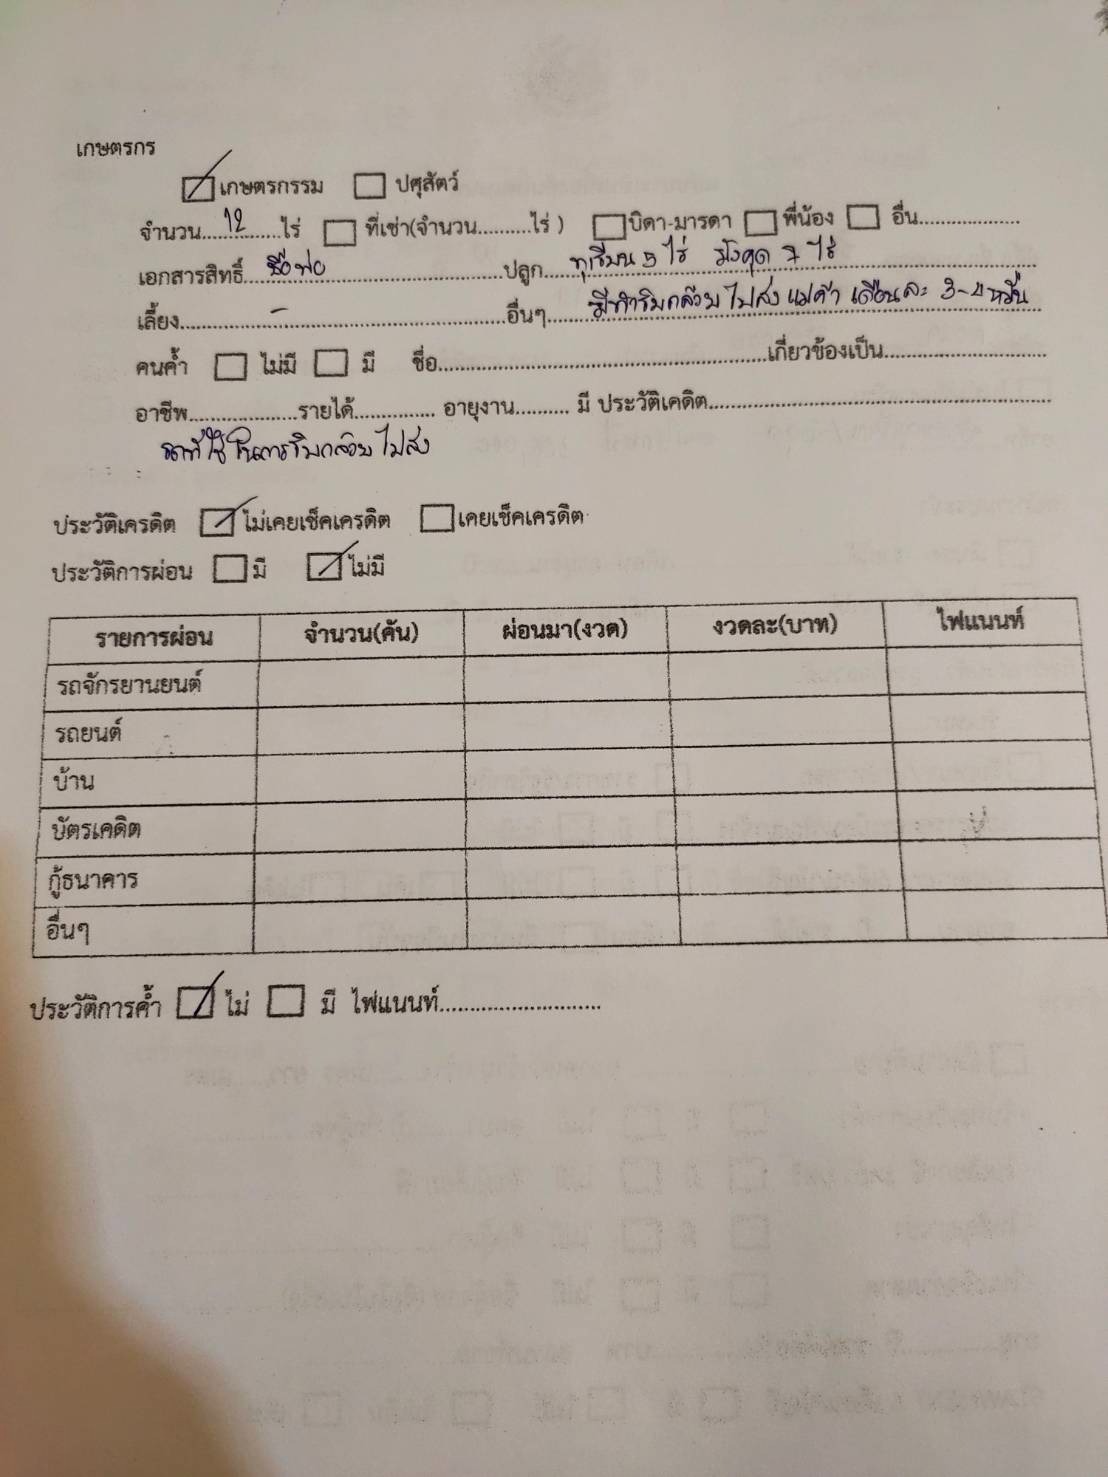 เกษตรกร
☑ เกษตรกรรม ☐ ปศุสัตว์
จำนวน....12....ไร่ ☐ ที่เช่า(จำนวน..........ไร่ ) ☐ บิดา-มารดา ☐ พี่น้อง ☐ อื่น..................
เอกสารสิทธิ์...ชื่อพ่อ...ปลูก...ทุเรียน 5 ไร่ มังคุด 7 ไร่
เลี้ยง...-...อื่นๆ...มีทำริมกล้วยไปส่งแม่ค้า เดือนละ 3-4 หมื่น
คนค้ำ ☐ ไม่มี ☐ มี ชื่อ...เกี่ยวข้องเป็น...
อาชีพ...รายได้...อายุงาน.......... มี ประวัติเคดิต...
ที่ใช้ในการริมกล้วยไปส่ง
ประวัติเครดิต ☑ ไม่เคยเช็คเครดิต ☐ เคยเช็คเครดิต
ประวัติการผ่อน ☐ มี ☑ ไม่มี
รายการผ่อน จำนวน(คัน) ผ่อนมา(งวด) งวดละ(บาท) ไฟแนนท์
รถจักรยานยนต์
รถยนต์
บ้าน
บัตรเคดิต
กู้ธนาคาร
อื่นๆ
ประวัติการค้ำ ☑ ไม่ ☐ มี ไฟแนนท์...........................